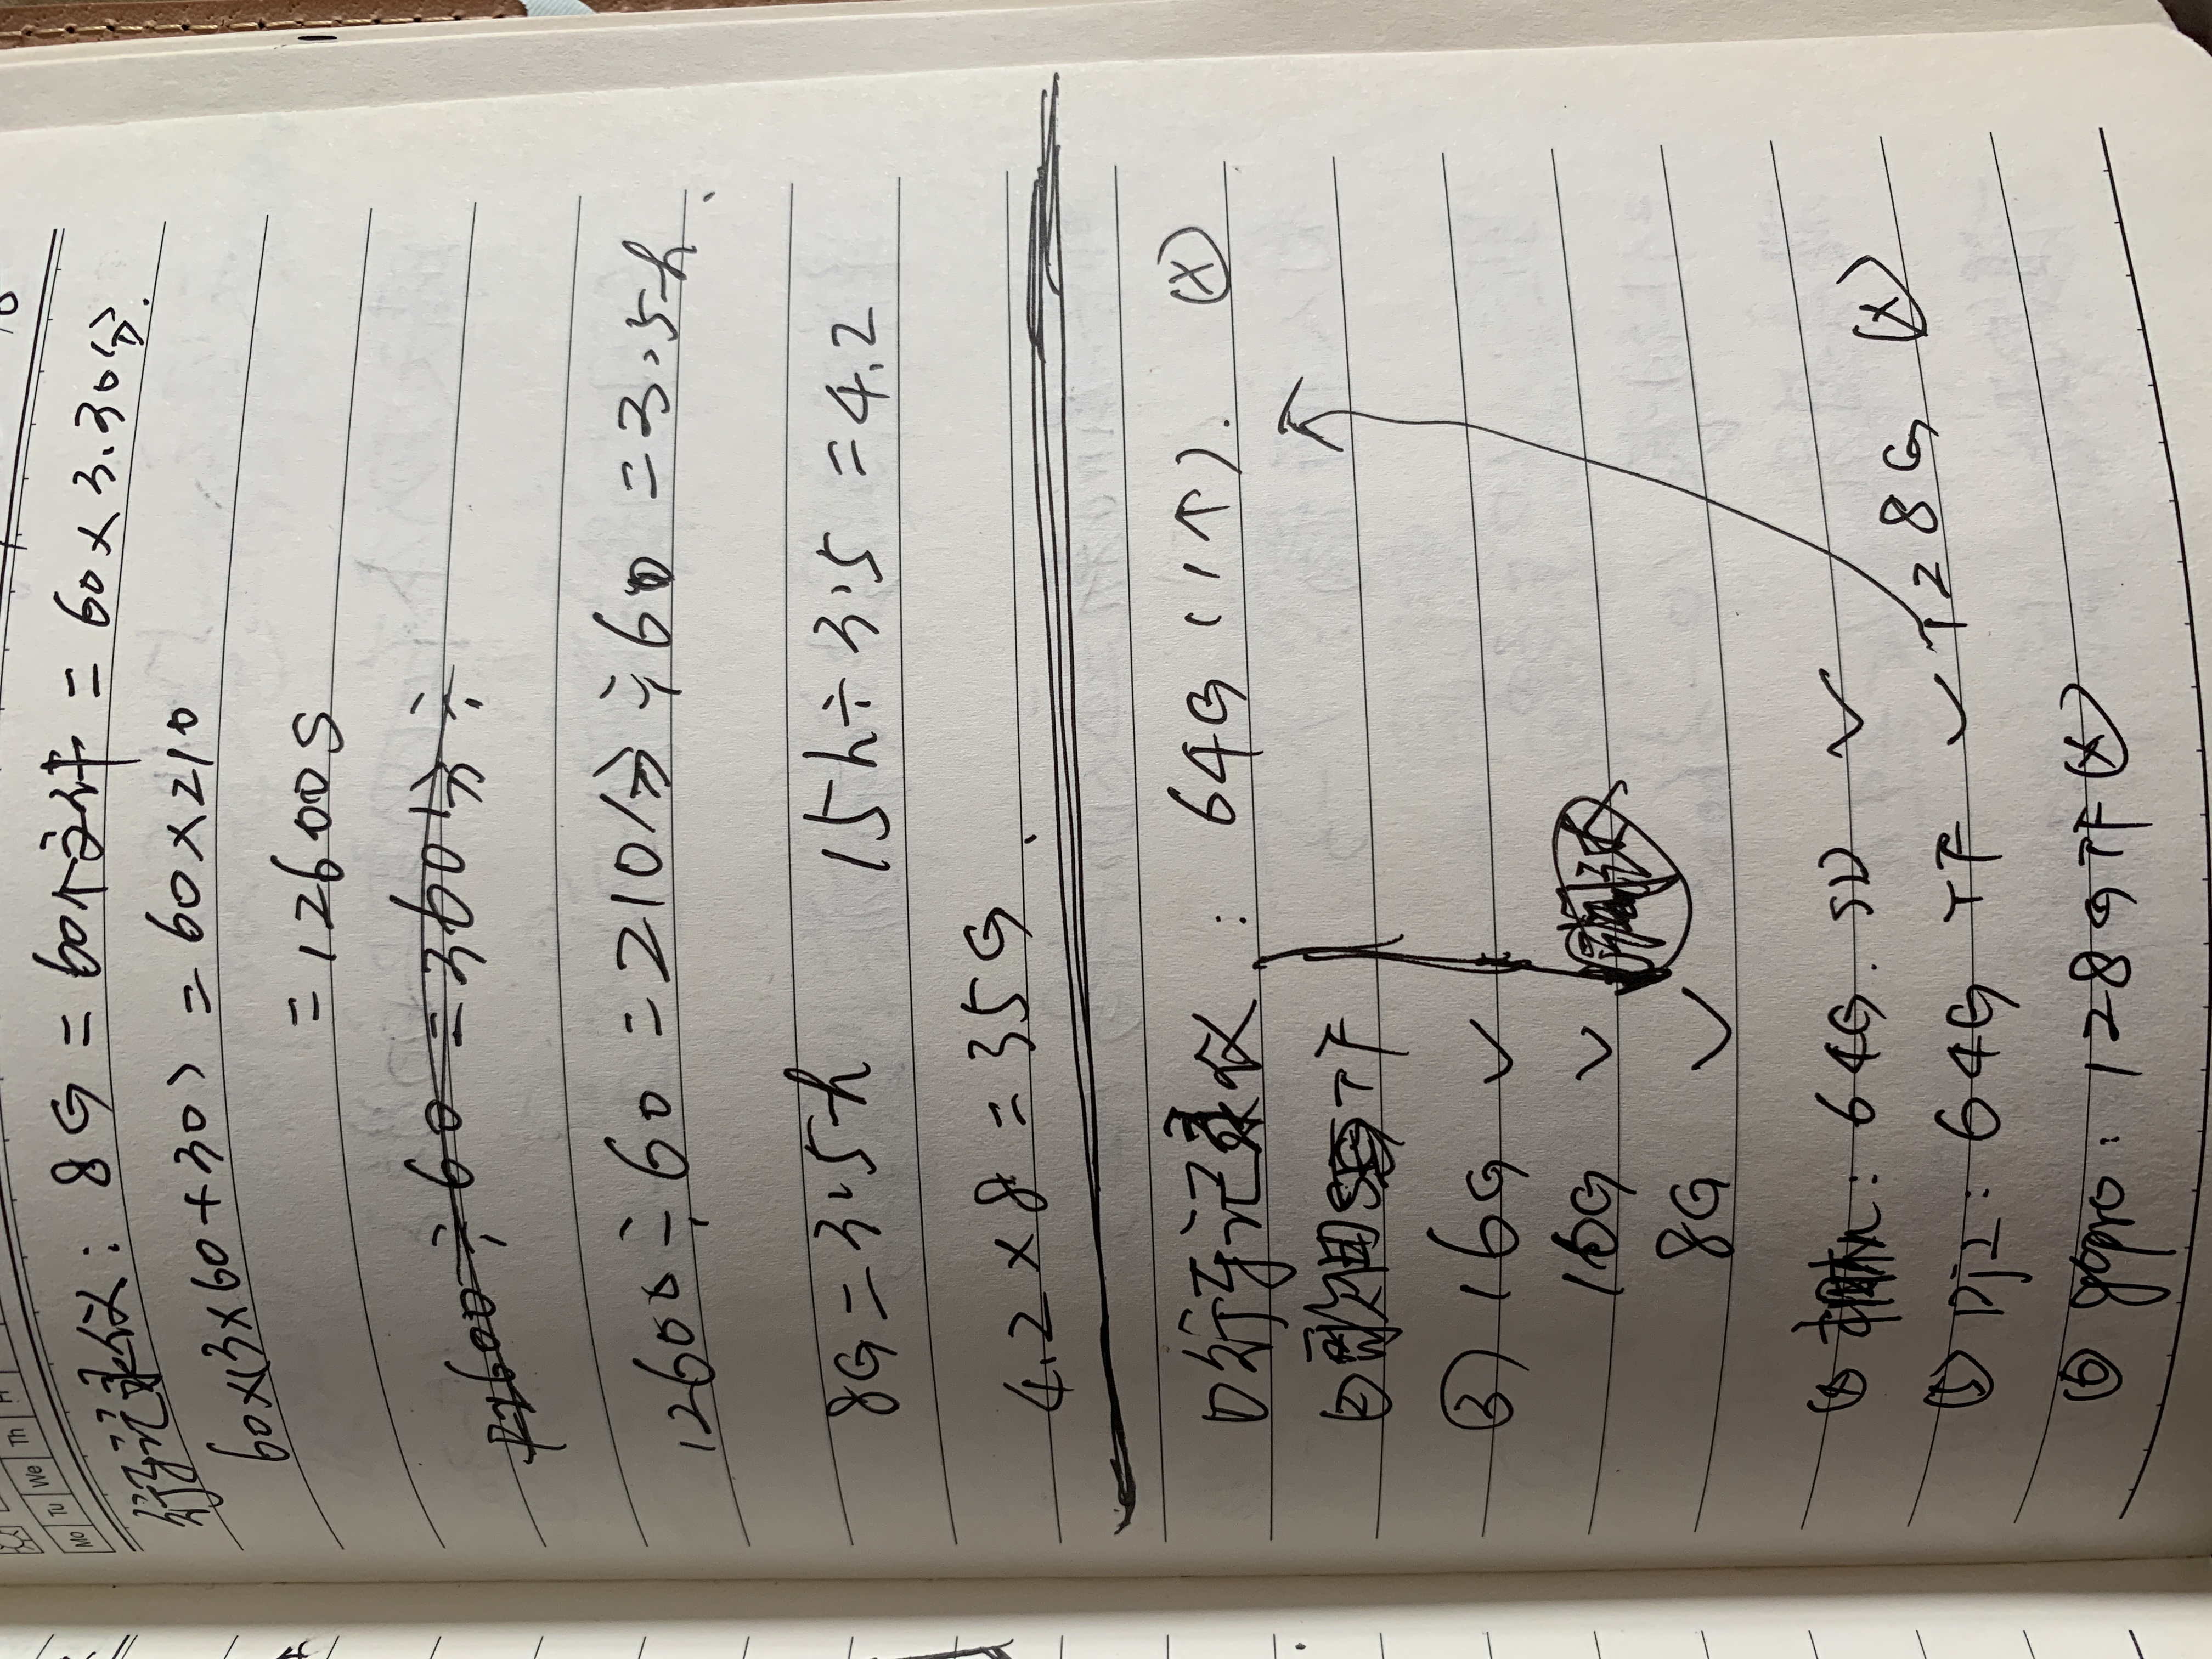 Mo Tu We Th
行车记录仪: 8G = 60个文件 = 60×3.30分.
60×(3×60+30) = 60×210
=12600S
12600÷60=360分÷
12600÷60=210分÷60=3.5h.
8G=3.5h 15h÷3.5=4.2
4.2×8=35G.
①行车记录仪: 64G(1个). ⓧ
②歌曲 TF
③ 16G ✓
16G ✓
8G ✓
④相机: 64G. SD ✓
⑤Dji: 64G TF ✓ 128G ⓧ
⑥gopro: 128G TF ⓧ